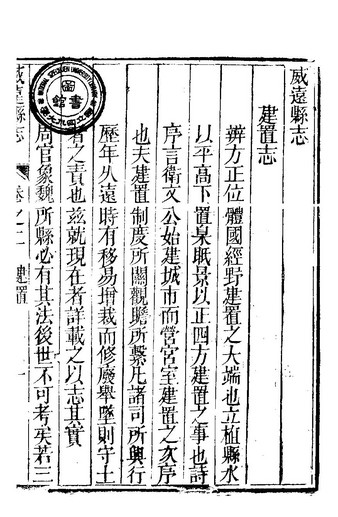 威遠縣志
建置志
辨方正位體國經野建置之大端也立植縣水
以平高下置臬眡景以正四方建置之事也詩
序言衛文公始建城市而營宮室建置之次序
也夫建置制度所關觀瞻所繫凡諸司所興行
歷年久遠時有移易增裁而修廢舉墜則守土
者之責也兹就現在者詳載之以志其實
周官象魏所縣必有其法後世不可考矣若三
威遠縣志 卷之二 建置 一